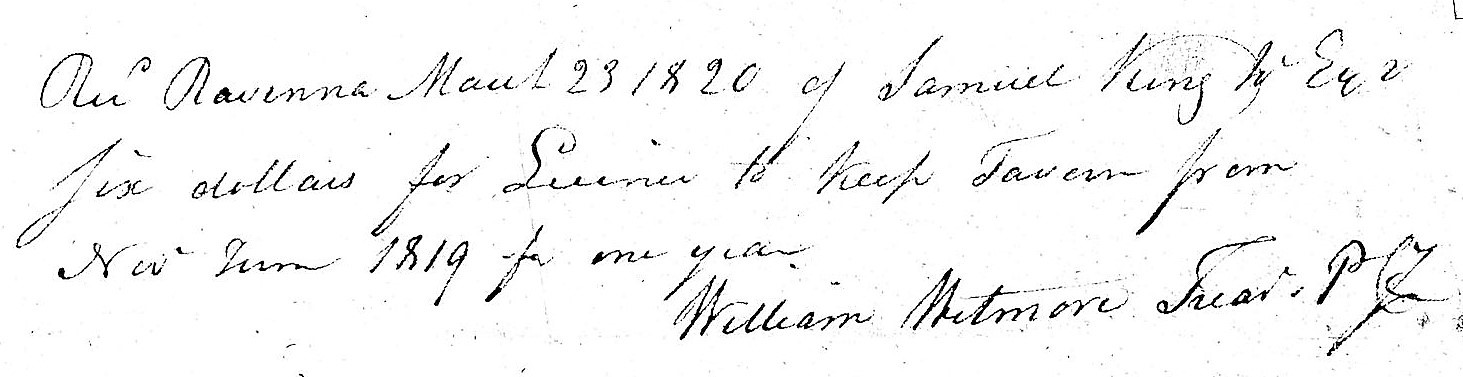 Recd Ravenna March 23 1820 of Samuel King Jr Esqr
Six dollars for Licence to keep Tavern from
Nov Term 1819 for one year
William Wetmore Treasr P C